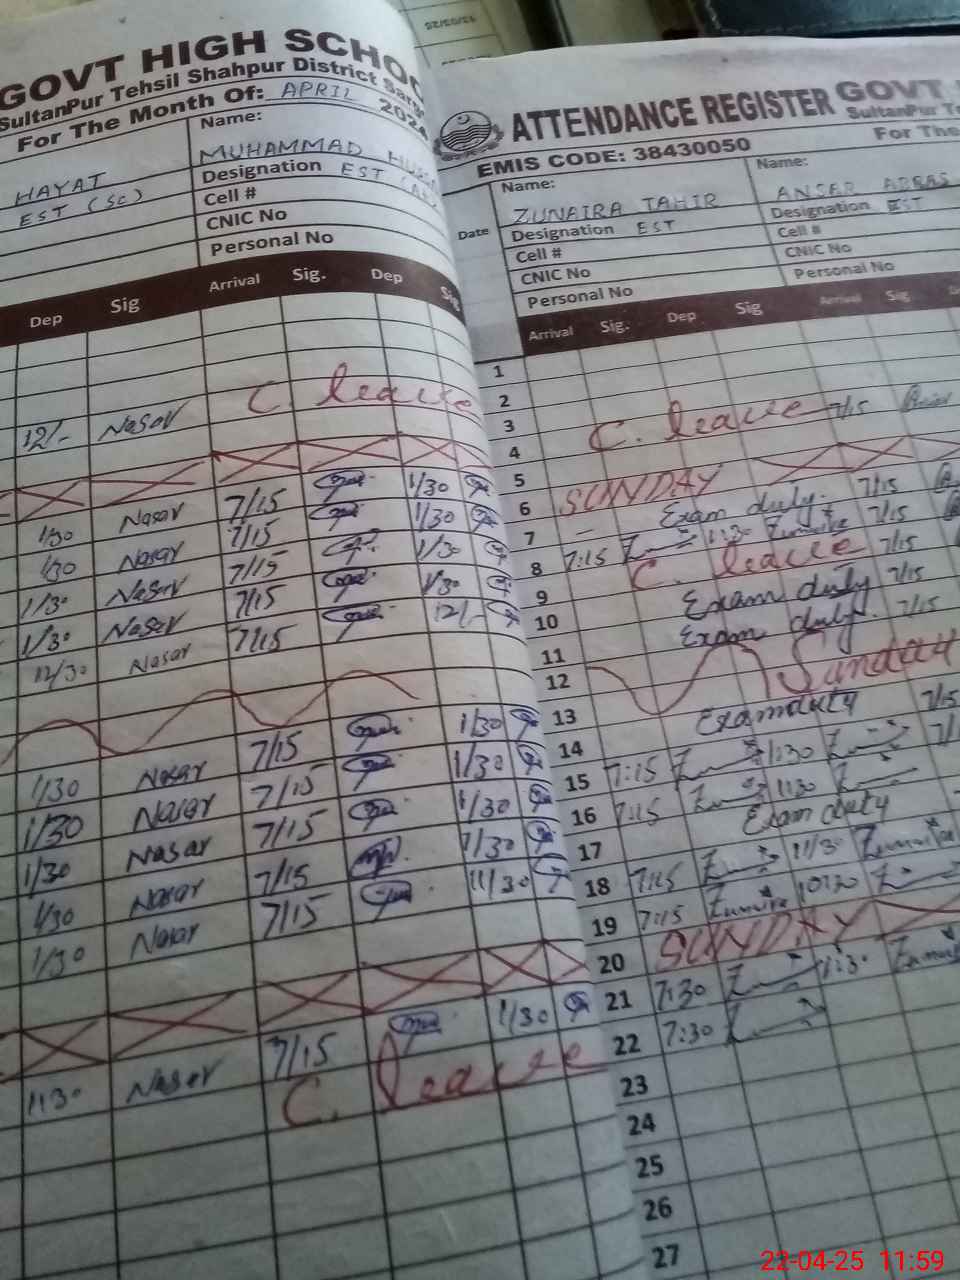 GOVT HIGH SCHO
SultanPur Tehsil Shahpur District Sarg
For The Month Of: APRIL 202
HAYAT
EST (SC)
Name:
MUHAMMAD
Designation EST
Cell #
CNIC No
Personal No
Dep Sig Arrival Sig. Dep Sig
C. leave
12/- Nasar
1/30 Nasar 7/15 1/30
1/30 Nasar 7/15 1/30
1/30 Nasar 7/15 1/30
1/30 Nasar 7/15 1/30
12/30 Nasar 7/15 12/-
1/30 Nasar 7/15 1/30
1/30 Nasar 7/15 1/30
1/30 Nasar 7/15 1/30
1/30 Nasar 7/15 1/30
1/30 Nasar 7/15 11/30
1130 Naser 7/15 1/30
C. leave
ATTENDANCE REGISTER GOVT
SultanPur T
EMIS CODE: 38430050
For The
Date
Name:
ZUNAIRA TAHIR
Designation EST
Cell #
CNIC No
Personal No
Name:
ANSAR ABBAS
Designation EST
Cell #
CNIC No
Personal No
Arrival Sig. Dep Sig Arrival Sig
1
2
3 C. leave 7/15
4
5 SUNDAY
6 Exam duty. 7/15
7 7:15 1:30 Zunaira 7/15
8 C. leave 7/15
9 Exam duty 7/15
10 Exam duty. 7/15
11
12 Sunday
13 Exam duty 7/15
14 7:15 1:30
15 7:15 1:30
16 Exam duty
17 7:15 11/30 Zunaira
18 7:15 Zunaira 10:30
19 SUNDAY
20
21 7:30 1:30 Zunaira
22 7:30
23
24
25
26
27
22-04-25 11:59